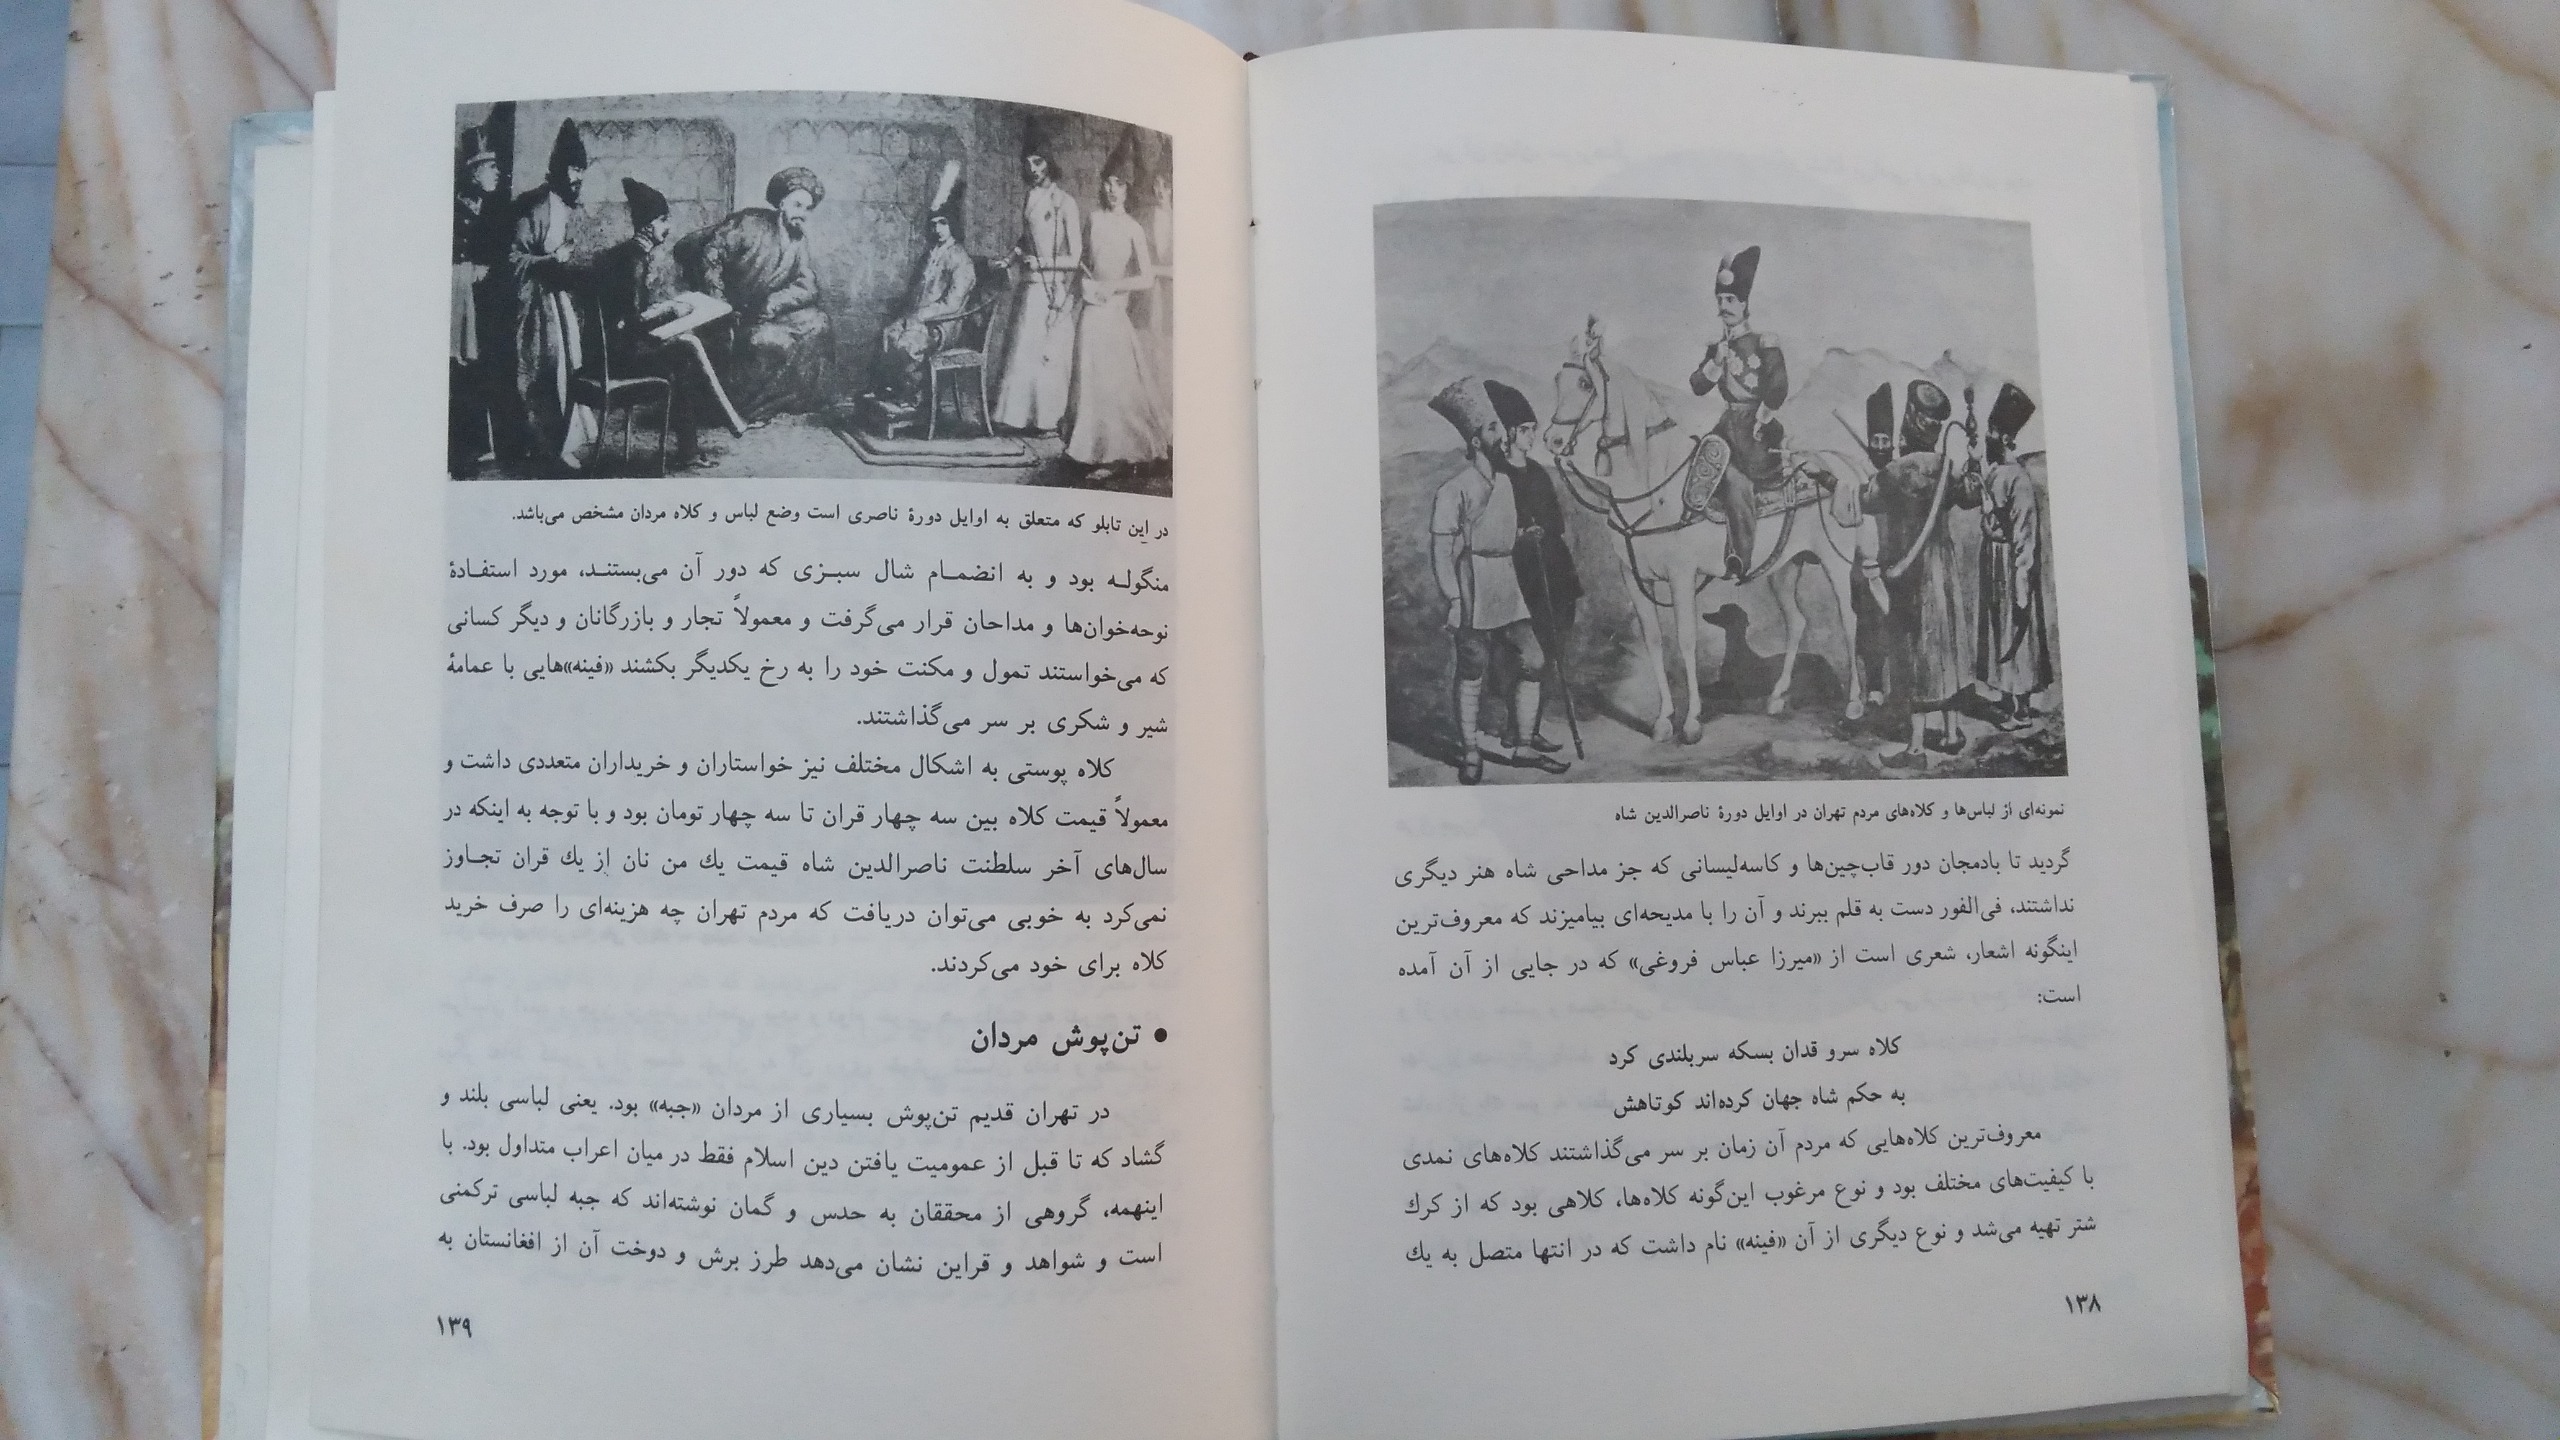 نمونه‌ای از لباس‌ها و کلاه‌های مردم تهران در اوایل دورهٔ ناصرالدین شاه
گردید تا بادمجان دور قاب‌چین‌ها و کاسه‌لیسانی که جز مداحی شاه هنر دیگری
نداشتند، فی‌الفور دست به قلم ببرند و آن را با مدیحه‌ای بیامیزند که معروف‌ترین
اینگونه اشعار، شعری است از «میرزا عباس فروغی» که در جایی از آن آمده
است:
کلاه سرو قدان بسکه سربلندی کرد
به حکم شاه جهان کرده‌اند کوتاهش
معروف‌ترین کلاه‌هایی که مردم آن زمان بر سر می‌گذاشتند کلاه‌های نمدی
با کیفیت‌های مختلف بود و نوع مرغوب این‌گونه کلاه‌ها، کلاهی بود که از کرك
شتر تهیه می‌شد و نوع دیگری از آن «فینه» نام داشت که در انتها متصل به یك
۱۳۸
در این تابلو که متعلق به اوایل دورهٔ ناصری است وضع لباس و کلاه مردان مشخص می‌باشد.
منگولـه بود و به انضمـام شال سبـزی که دور آن می‌بستنـد، مورد استفـادهٔ
نوحه‌خوان‌ها و مداحان قرار می‌گرفت و معمولاً تجار و بازرگانان و دیگر کسانی
که می‌خواستند تمول و مکنت خود را به رخ یکدیگر بکشند «فینه»هایی با عمامهٔ
شیر و شکری بر سر می‌گذاشتند.
کلاه پوستی به اشکال مختلف نیز خواستاران و خریداران متعددی داشت و
معمولاً قیمت کلاه بین سه چهار قران تا سه چهار تومان بود و با توجه به اینکه در
سال‌های آخر سلطنت ناصرالدین شاه قیمت یك من نان از یك قران تجـاوز
نمی‌کرد به خوبی می‌توان دریافت که مردم تهران چه هزینه‌ای را صرف خرید
کلاه برای خود می‌کردند.
• تن‌پوش مردان
در تهران قدیم تن‌پوش بسیاری از مردان «جبه» بود. یعنی لباسی بلند و
گشاد که تا قبل از عمومیت یافتن دین اسلام فقط در میان اعراب متداول بود. با
اینهمه، گروهی از محققان به حدس و گمان نوشته‌اند که جبه لباسی ترکمنی
است و شواهد و قراین نشان می‌دهد طرز برش و دوخت آن از افغانستان به
۱۳۹